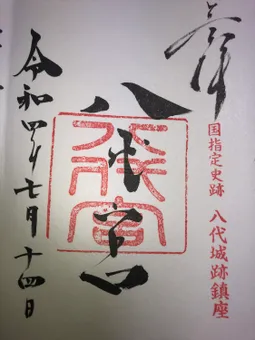 奉拝
国指定史跡 八代城跡鎮座
八代宮
令和四年七月十四日